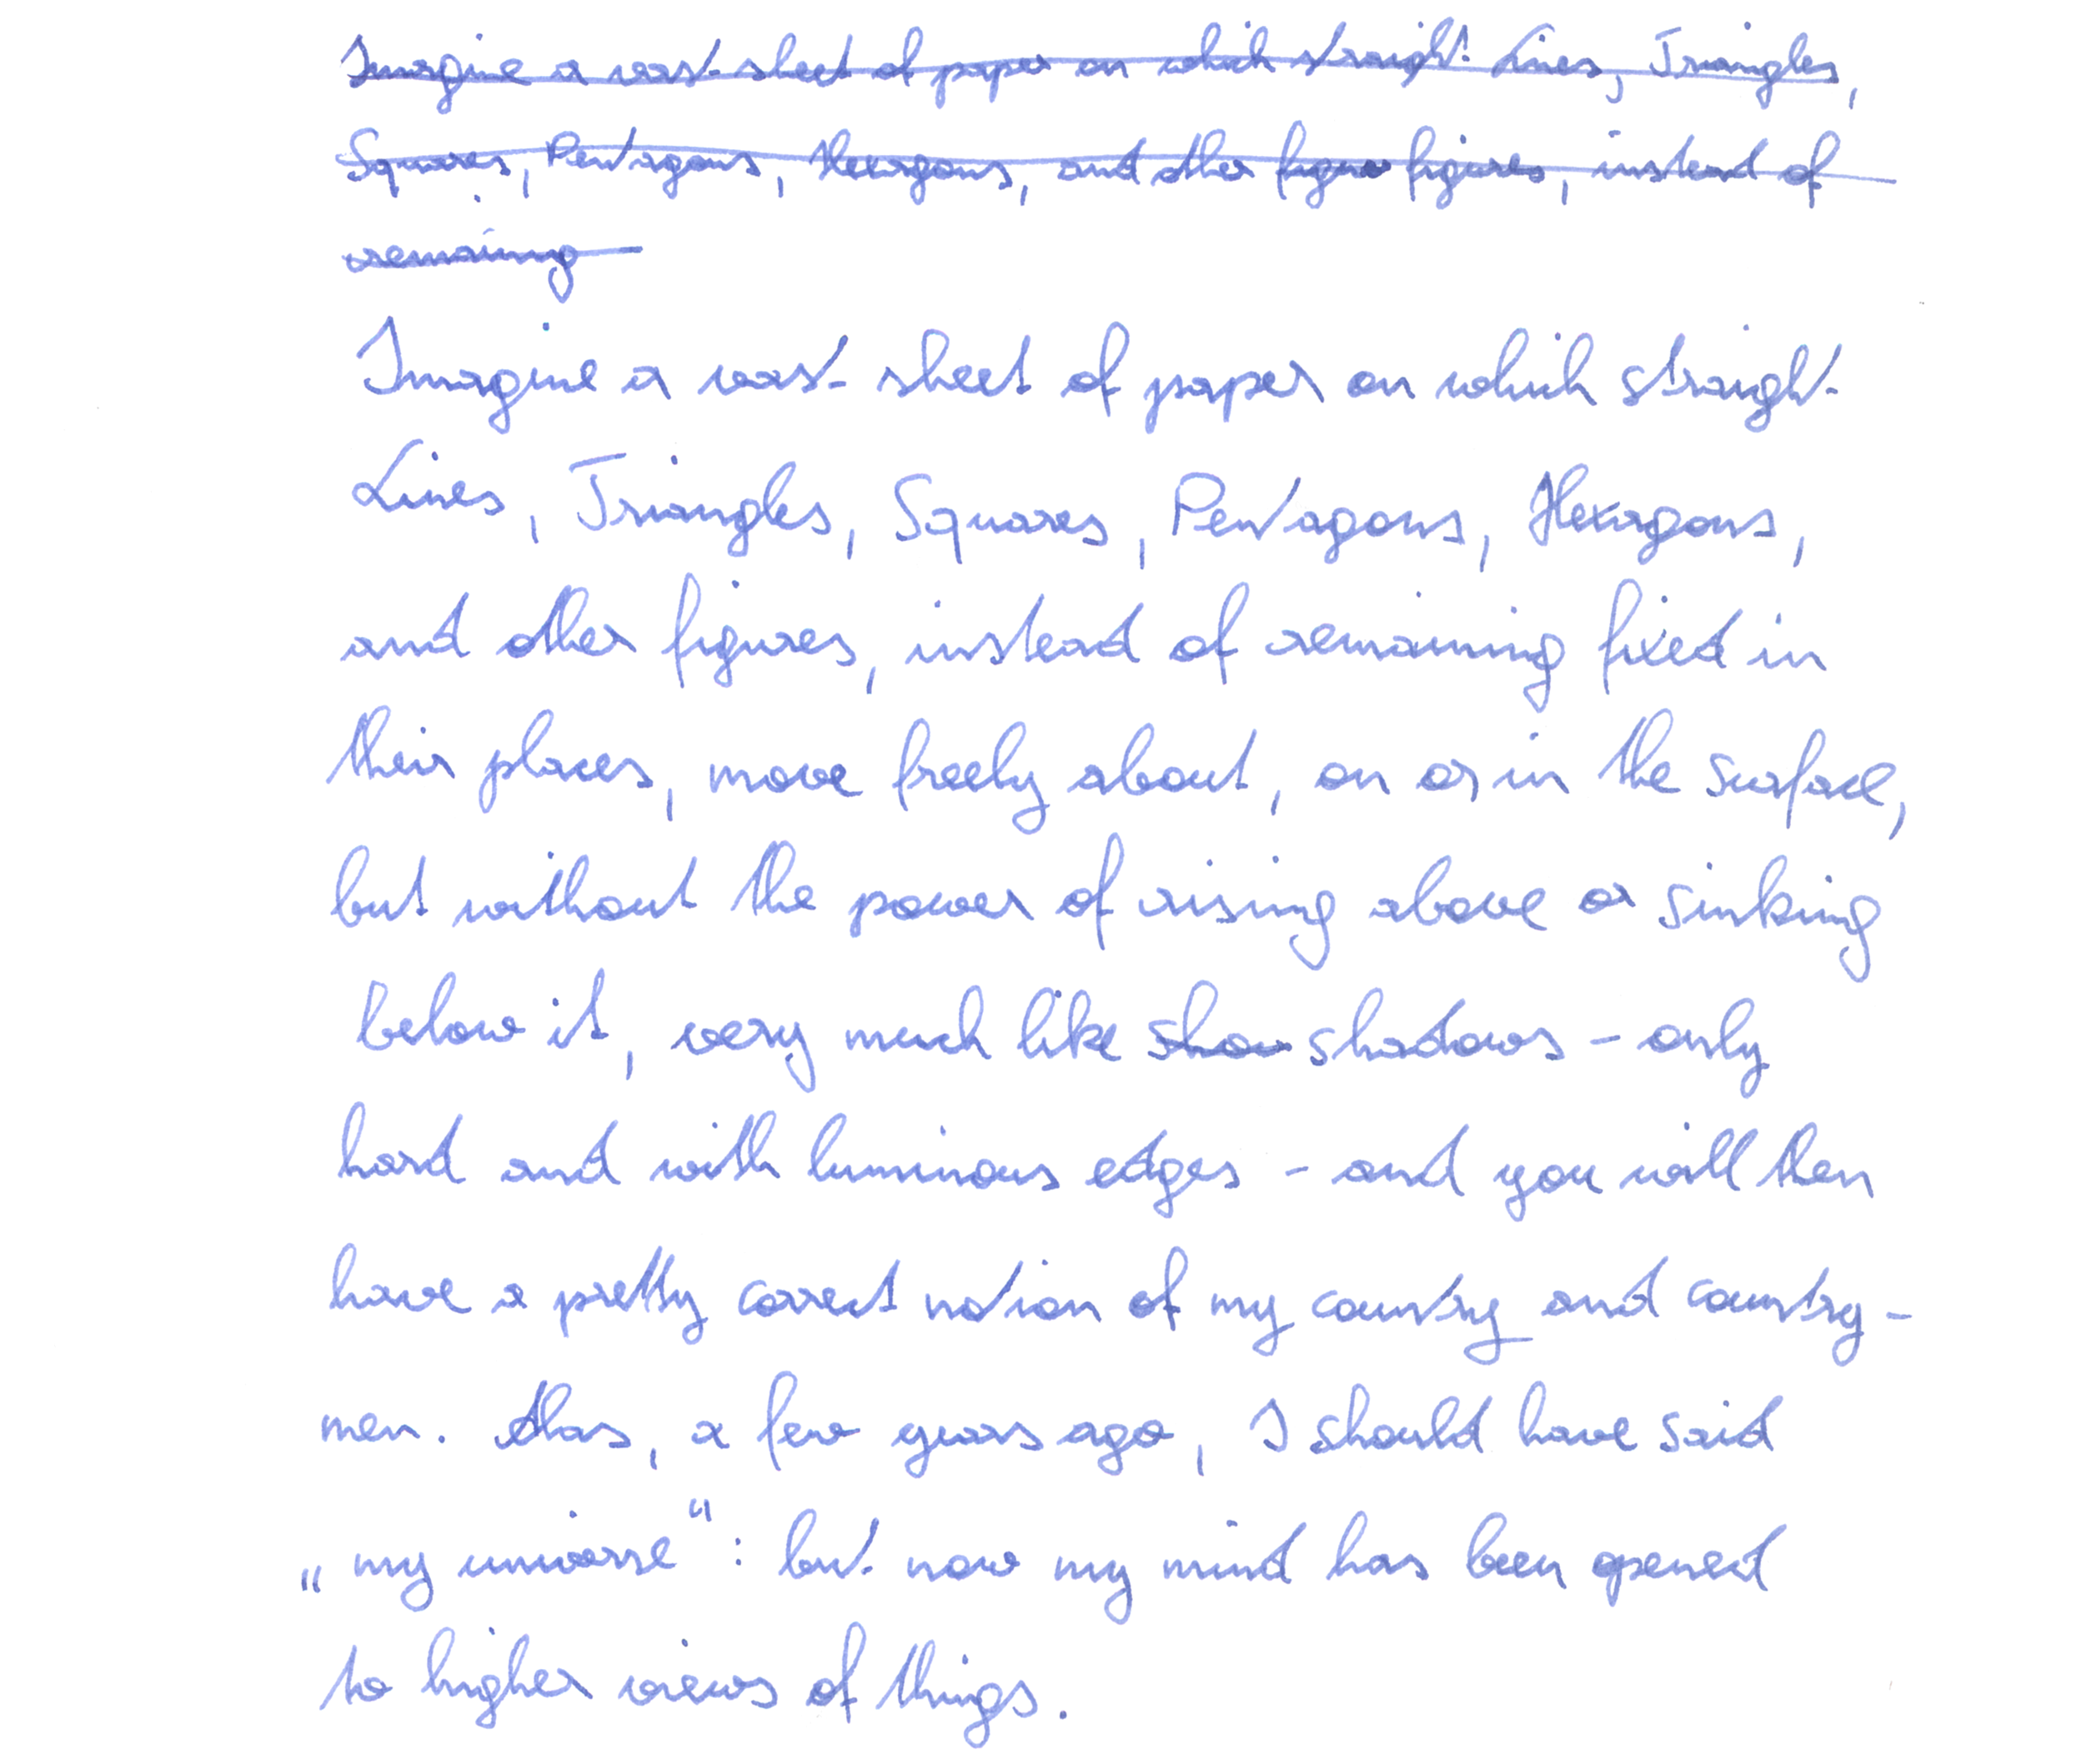 Imagine a vast sheet of paper on which straight Lines, Triangles,
Squares, Pentagons, Hexagons, and other figure figures, instead of
remaining
Imagine a vast sheet of paper on which straight
Lines, Triangles, Squares, Pentagons, Hexagons,
and other figures, instead of remaining fixed in
their places, move freely about, on or in the surface,
but without the power of rising above or sinking
below it, very much like show shadows - only
hard and with luminous edges - and you will then
have a pretty correct notion of my country and country-
men. Alas, a few years ago, I should have said
„my universe“: but now my mind has been opened
to higher views of things.